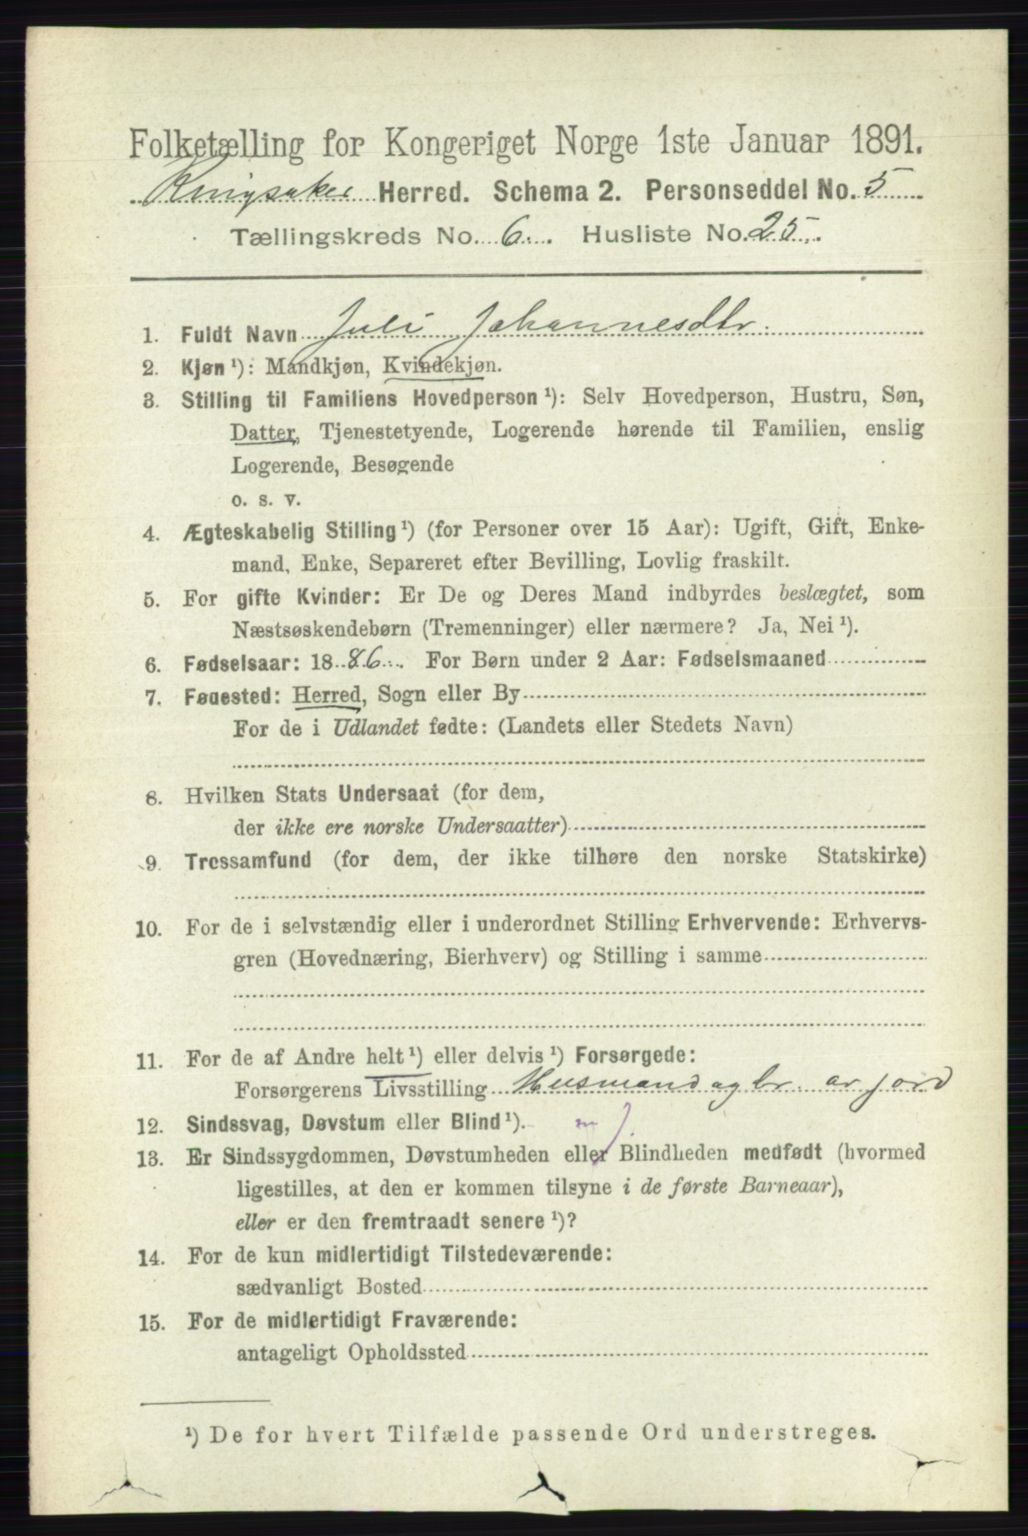 Folketælling for Kongeriget Norge 1ste Januar 1891.
Ringsaker Herred. Schema 2. Personseddel No. 5
Tællingskreds No. 6. Husliste No. 25.
1. Fuldt Navn Juli Johannesdtr.
2. Kjøn ¹): Mandkjøn, Kvindekjøn.
3. Stilling til Familiens Hovedperson ¹): Selv Hovedperson, Hustru, Søn,
Datter, Tjenestetyende, Logerende hørende til Familien, enslig
Logerende, Besøgende
o. s. v.
4. Ægteskabelig Stilling ¹) (for Personer over 15 Aar): Ugift, Gift, Enke-
mand, Enke, Separeret efter Bevilling, Lovlig fraskilt.
5. For gifte Kvinder: Er De og Deres Mand indbyrdes beslægtet, som
Næstsøskendebørn (Tremenninger) eller nærmere? Ja, Nei ¹).
6. Fødselsaar: 1886. For Børn under 2 Aar: Fødselsmaaned
7. Fødested: Herred, Sogn eller By
For de i Udlandet fødte: (Landets eller Stedets Navn)
8. Hvilken Stats Undersaat (for dem,
der ikke ere norske Undersaatter)
9. Trossamfund (for dem, der ikke tilhøre den norske Statskirke)
10. For de i selvstændig eller i underordnet Stilling Erhvervende: Erhvervs-
gren (Hovednæring, Bierhverv) og Stilling i samme
11. For de af Andre helt ¹) eller delvis ¹) Forsørgede:
Forsørgerens Livsstilling Husmand agbr. av jord
12. Sindssvag, Døvstum eller Blind ¹).
13. Er Sindssygdommen, Døvstumheden eller Blindheden medfødt (hvormed
ligestilles, at den er kommen tilsyne i de første Barneaar),
eller er den fremtraadt senere ¹)?
14. For de kun midlertidigt Tilstedeværende:
sædvanligt Bosted
15. For de midlertidigt Fraværende:
antageligt Opholdssted
¹) De for hvert Tilfælde passende Ord understreges.